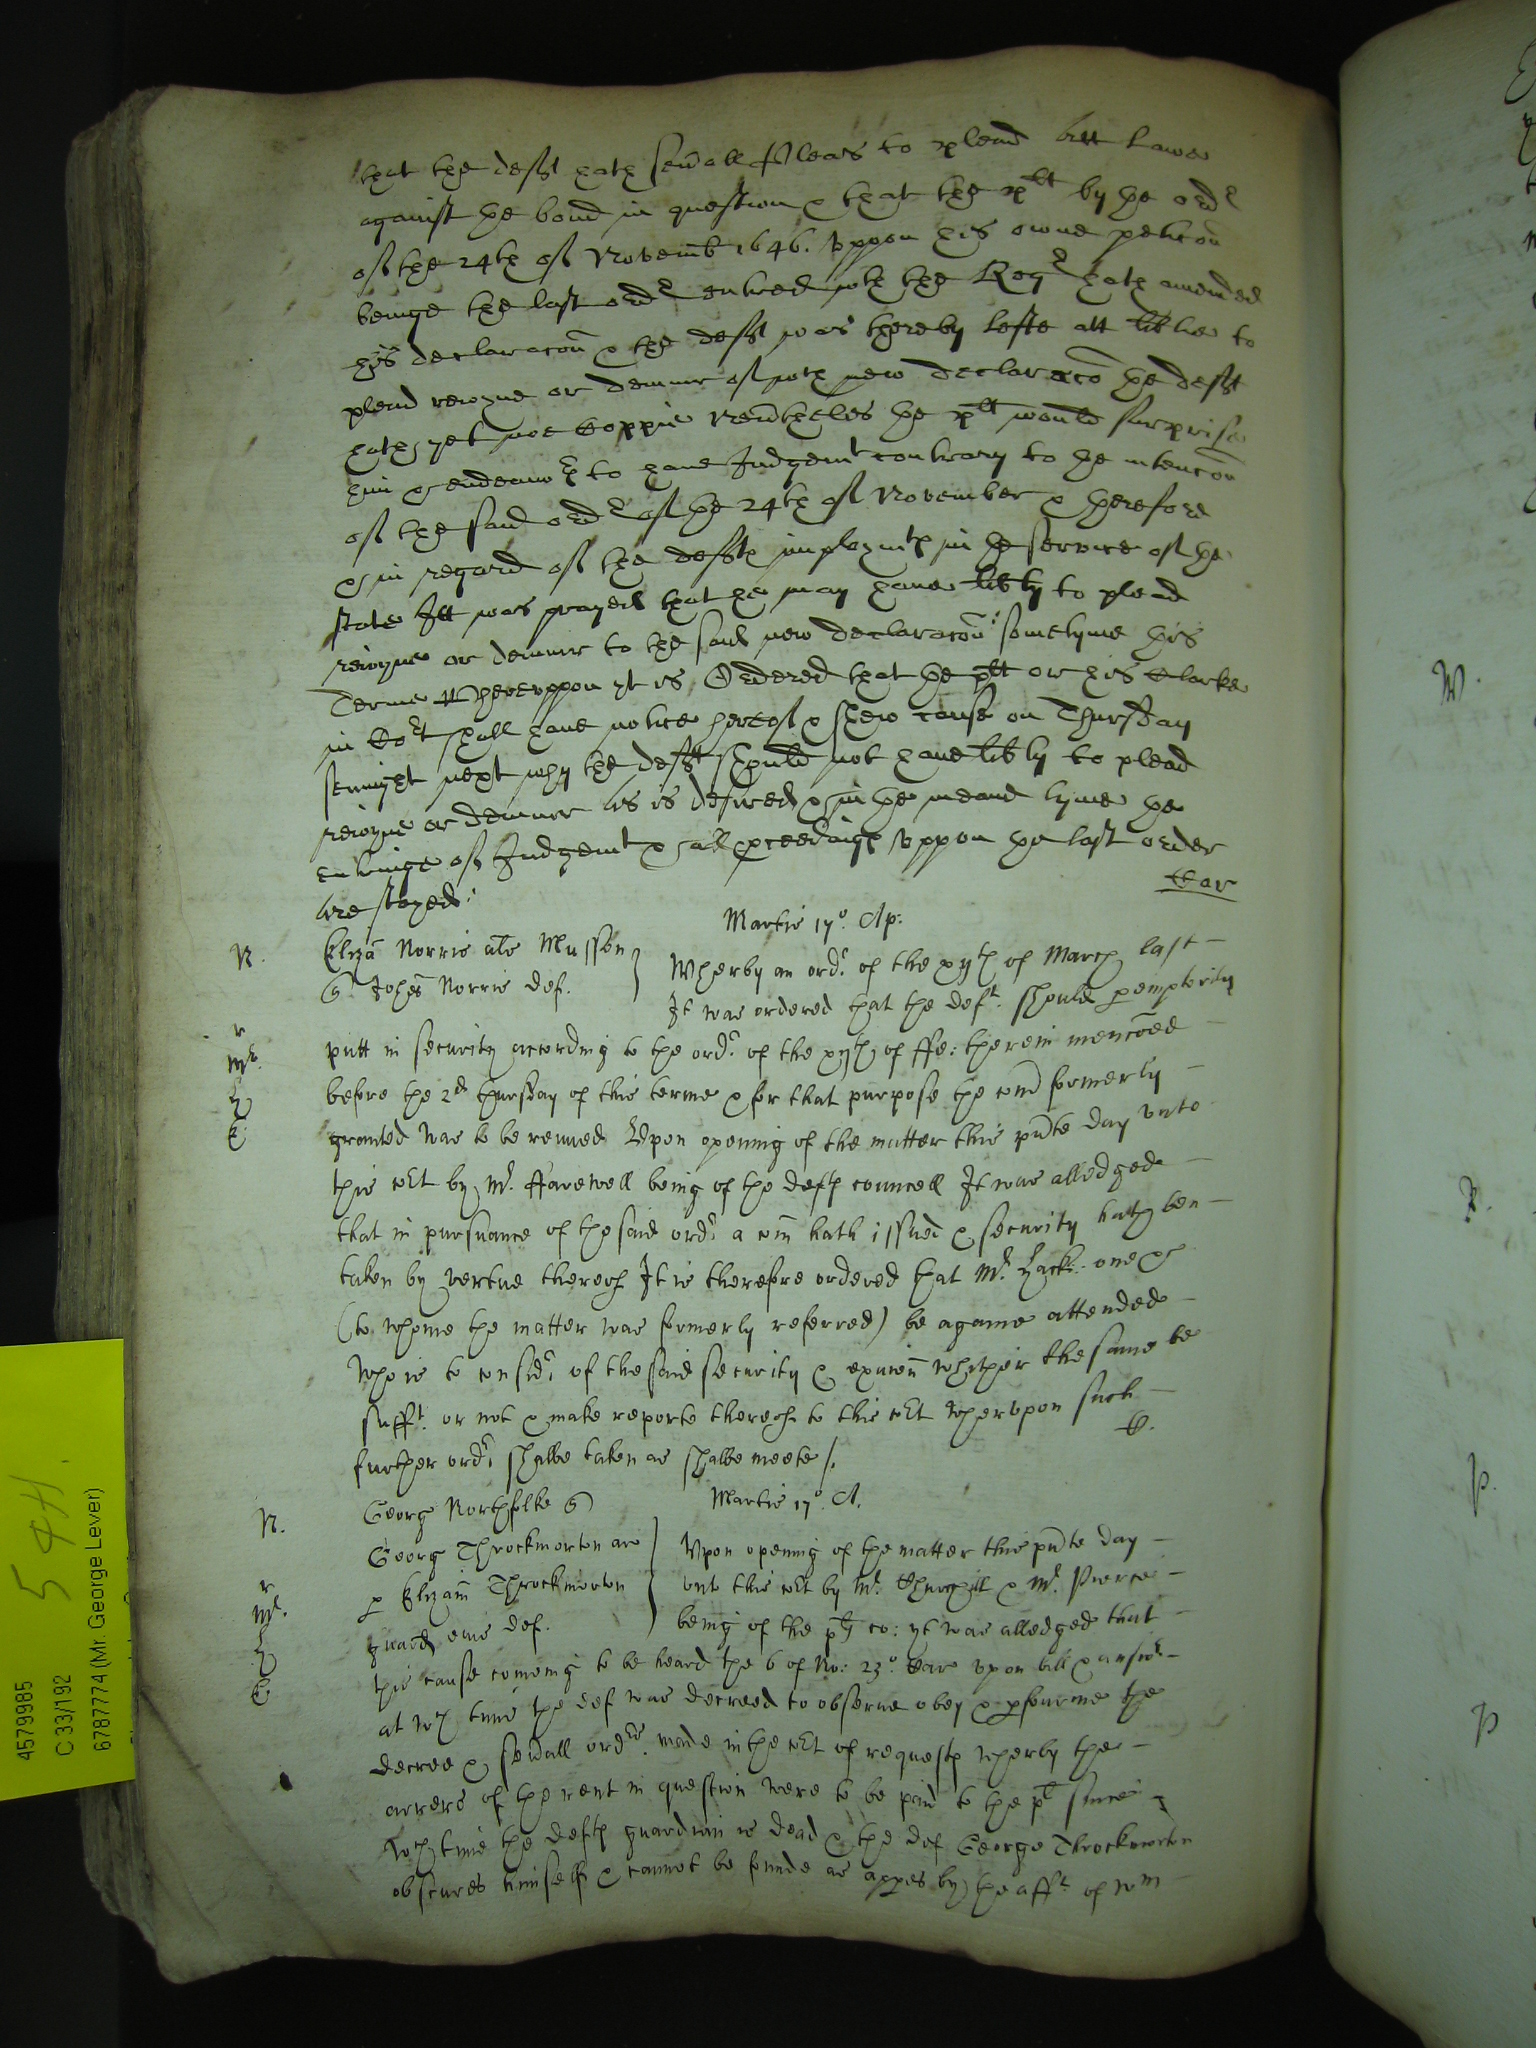 that the deft hath sevall Pleas to plead att Lawe
against the bond in question & that the plt by the ordr
of the 24th of Novemb 1646. uppon his owne peticon
beinge the last ordr entred wth the Regr hath amended
his declaracon & the deft was thereby lefte att libtie to
plead reioyne or demurr of wch new declaracon the deft
hath yet noe Coppie Nevtheles the plt would surprise
him & endeavor to have Judgemt contrary to the intencon
of the said ordr of the 24th of November & therefore
& in regard of the defts imploymt in the service of the
state Itt was prayed that he may have libty to plead
reioyne or demurr to the said new declaracon sometyme this
Terme Whereuppon yt is Ordered that the plt or his Clarke
in Cort shall have notice hereof & shew cause on Thursday
sennight next why the deft should not have libty to plead
reioyne or demurr as is desired & in the meane tyme the
entringe of Judgemt & all pceedings uppon the last order
are stayed:
Car
Martis 17o. Ap:
N.
Eliza Norris als Musson
q Johes Norris def.
Wherby an ordr. of the xvth of March last
It was ordered that the deft. should pemptorily
r
Mr.
h
C
putt in security according to the ordr. of the xijth of ffe: therein menconed
before the 2d thursday of this terme & for that purpose the com formerly
granted was to be renued Upon opening of the matter this pnte day unto
this cort by Mr. ffarewell being of the defts councell It was alledged
that in pursuance of the said ordr a com hath issued & security hath ben
taken by vertue therof It is therefore ordered that Mr. Hack: one &c
(to whome the matter was formerly referred) be againe attended
who is to considr of the said security & examin whither the same be
sufft. or not & make reporte therof to this cort wherupon such
further ordr shalbe taken as shalbe meete /.
C.
Martis 17o. A.
N.
Georg Northfolke q
Georg Throckmorton ar
p Elizam Throckmorton
guard eius def.
Upon opening of the matter this pnte day
unto this cort by Mr. Churchill & Mr. Pierce
being of the pls co: yt was alledged that
r
Mr.
h
C
this cause coming to be heard the 6 of No: 23o. Car upon bill & answr
at wch time the def was decreed to observe obey & pfourme the
decree & sevall ordrs made in the cort of requests wherby the
arrers of the rent in question were to be paid to the pl since
wch time the defts guardian is dead & the def George Throckmorton
obscures himself & cannot be founde as appes by the afft. of Wm
4579985
C 33/192
6787774 (Mr. George Lever)
54H.
W.
P.
P